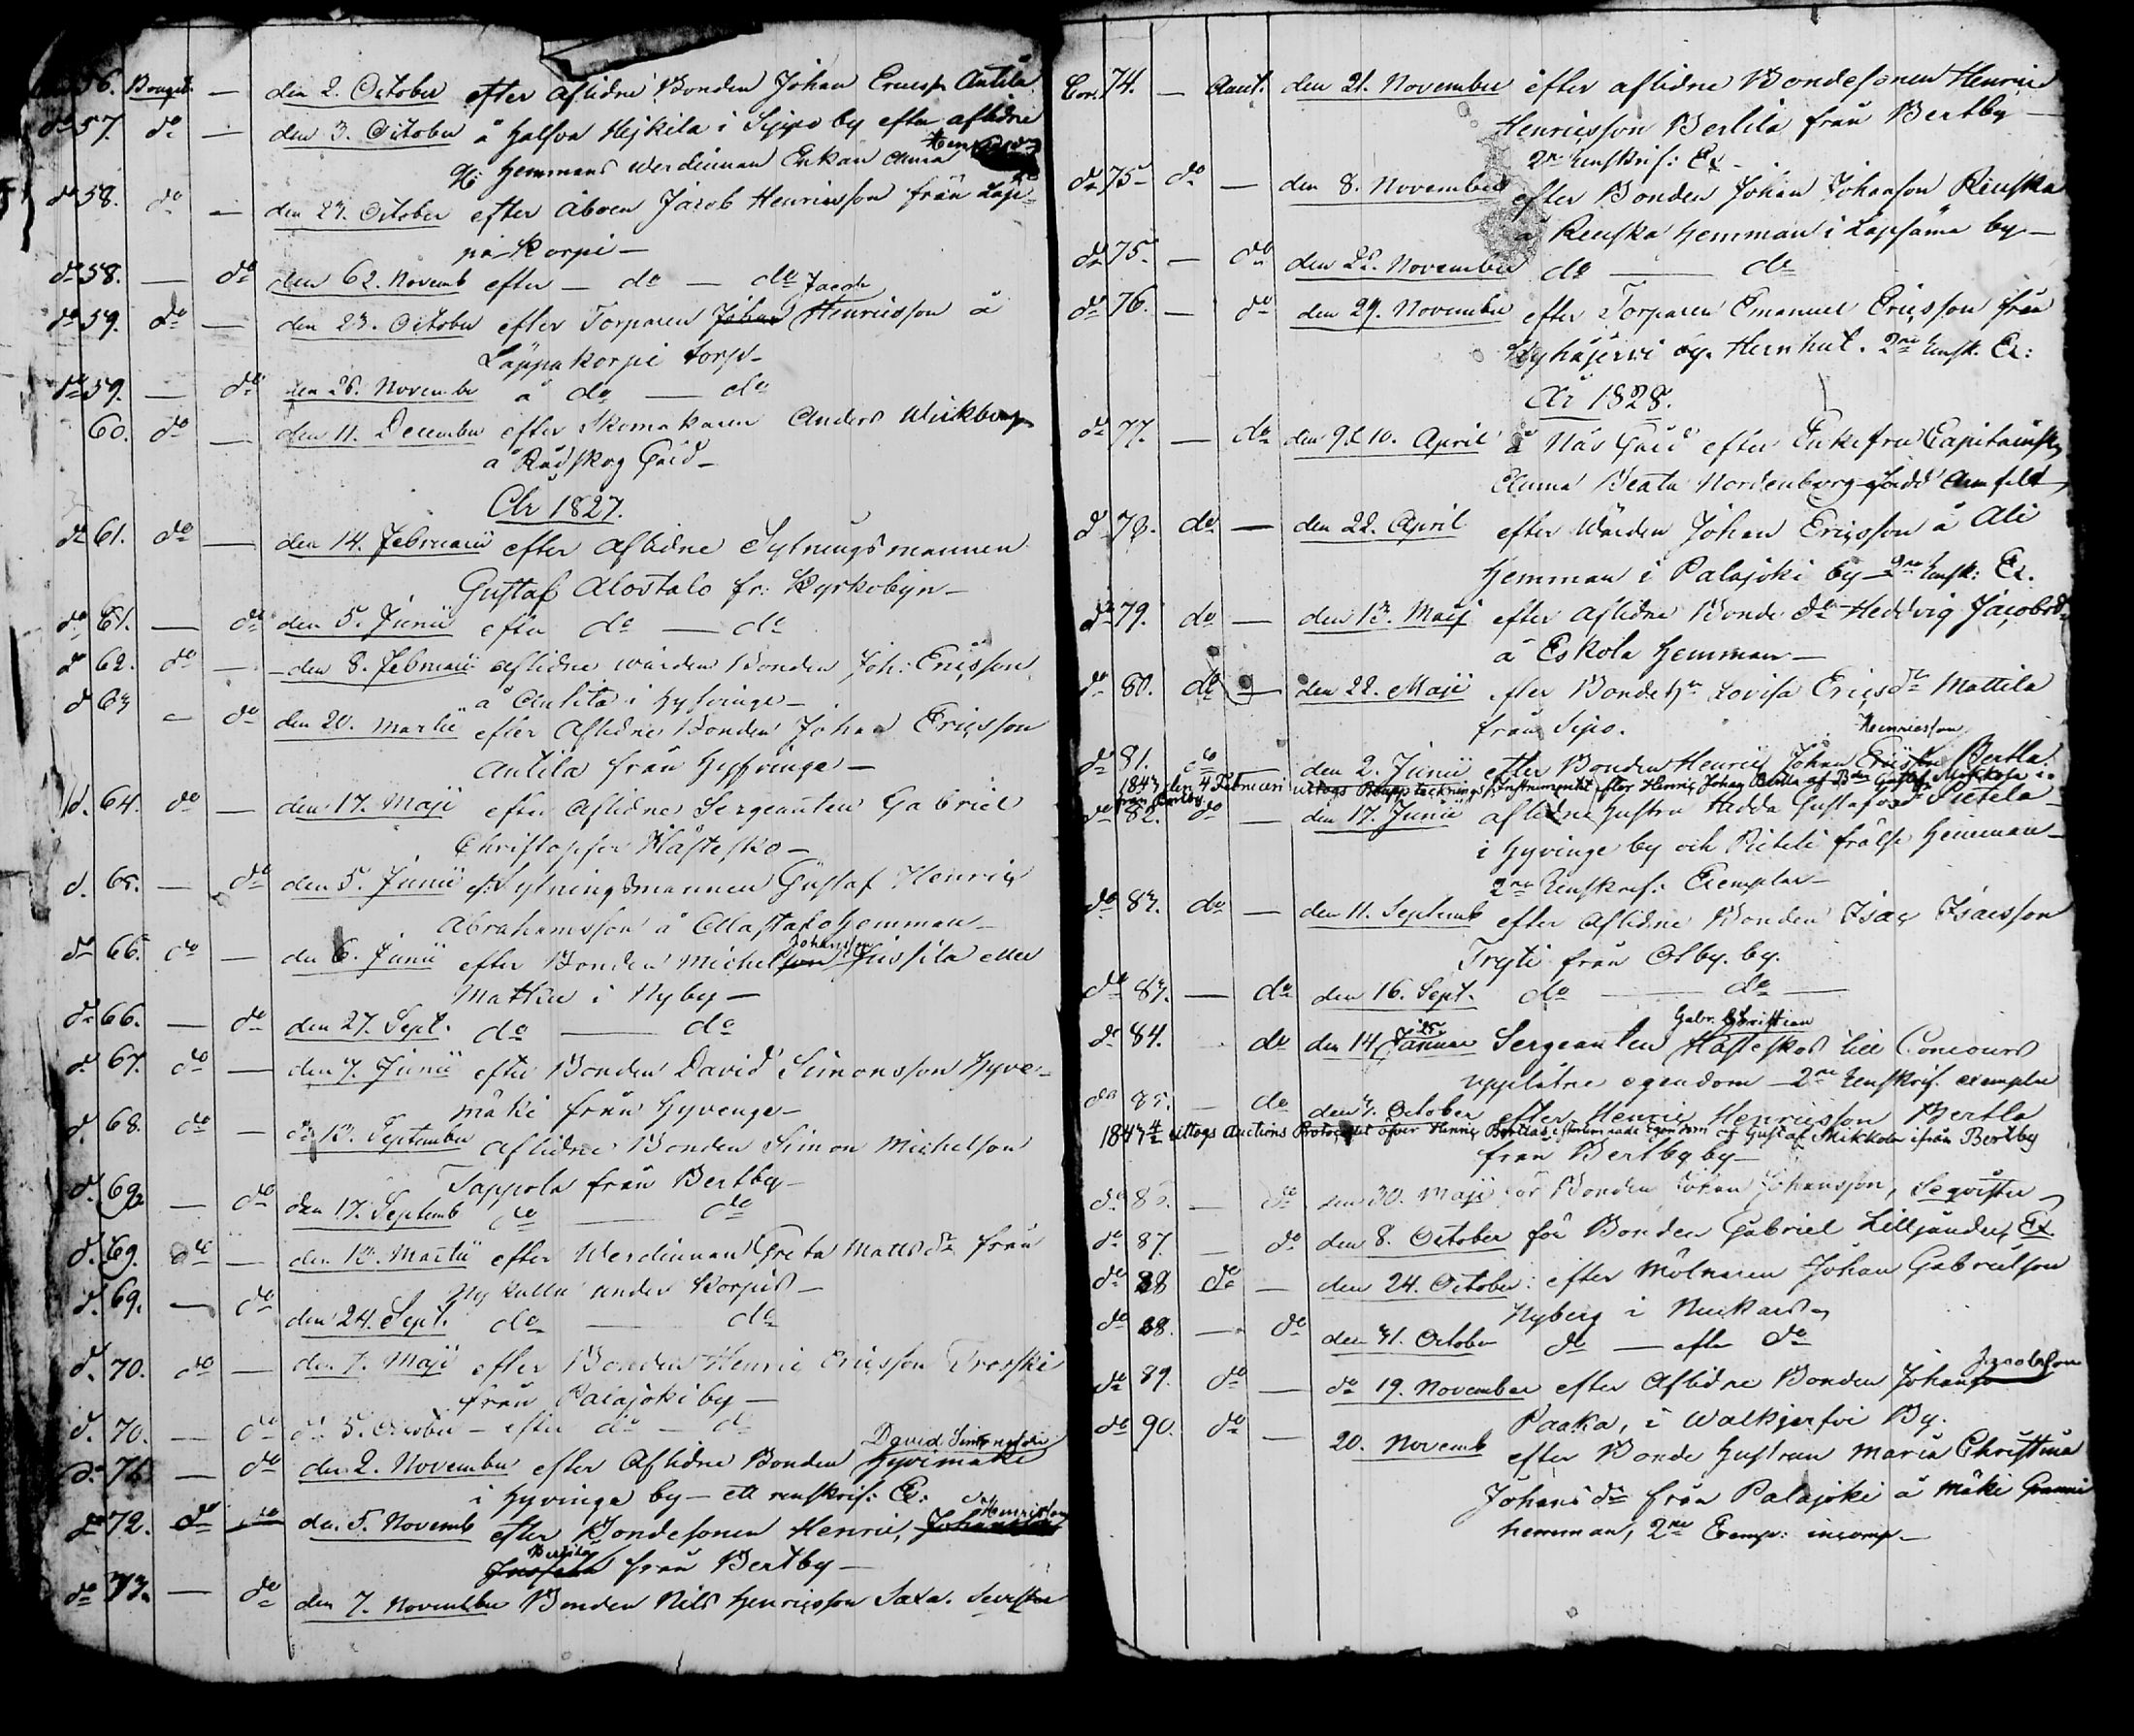 56. Bouget. — den 2. October efter Aflidne Bonden Johan Ericss: Antila
do 57. do — den 3. October å halfva Hejkila i Sjipo by efter aflidne
Hemmans Werdinnan Enkan Anna Henr
do 58. do — den 27. October efter Åboen Jacob Henricsson från Lap-
pa-Korpi —
do 58. — do den 62. Novemb efter — do — do Jacob
do 59. do — den 23. October efter Torparen Johan Henricsson å
Lappakorpi torp —
do 59. — do den 28. November å do — do
60. do — den 11. December efter Skomakaren Anders Wickberg
å Rådskog Gård —
År 1827.
do 61. do — den 14. Februarii efter Aflidne Sytningsmannen
Gustaf Alostalo fr: Kyrkobyn —
do 61. — do den 5. Junii efter do — do
do 62. do — den 8. Februarii aflidne wärden Bonden Joh: Ericsson
å Antila i Hyfvinge —
do 63 — do den 20. Martii efter Aflidne Bonden Johan Ericsson
Antila från Hyfvinge —
d. 64. do — den 17. Maji efter Aflidne Sergeanten Gabriel
Christopher Hästesko —
d. 65. — do den 5. Junii ef: Sytningsmannen Gustaf Henric
Abrahamsson å Allastalo Hemman —
do 66. do — den 6. Junii efter Bonden Michel Johansson Jussila eller
Mattila i Nyby —
do 66. — do den 27. Sept. do — do
do 67. do — den 7. Junii efter Bonden David Simonsson Hyve-
mäki från Hyvenge —
d. 68. do — d: 13. September Aflidne Bonden Simon Michelson
Tappola från Bertby —
d. 69 — do den 17. Septemb do — do
d. 69. do — den 12. Martii efter Werdinnan Greta Matts dr från
Nykulla under Korpis —
d. 69. — do den 24. Sept. do — do
d. 70. do — den 7. Maji efter Bonden Henric Ericsson Trosski
från Palajoki by —
d. 70. — do d. 5. October — efter do — do
do 71 — do den 2. November efter Aflidne Bonden David Simonsson Hyvimäki
i Hyvinge by — ett renskrif: Ex:
do 72. do do den 5. Novemb efter Bondesonen Henric, Henricsson
Bertila från Bertby —
do 73. — do den 7. November Bonden Nils Henricsson Saxa.
Cov. 74. — Auct. den 21. November efter aflidne Bondesonen Henric
Henricsson Bertila från Bertby —
2ne renskrif: Ex —
do 75 — do — den 8. November efter Bonden Johan Johansson Renska
å Renska Hemman i Lapsäma by —
do 75. — do den 25. November do — do
do 76. — do den 29. November efter Torparen Emanuel Ericsson från
Kyhäjervi og. Hernhut. 2ne rensk. Ex:
År 1828.
do 77. — do den 9. & 10. April å Näs Gård efter Enkefru Capitainskan
Anna Beata Nordenborg född Armfelt
d. 78. do — den 22. April efter Wärden Johan Ericsson å Ali
Hemman i Palajoki by — 2ne rensk: Ex.
do 79. do — den 13. Maij efter Aflidne Bonde dr Hedvig Jacobsdr
å Eskola Hemman —
do 80. do — den 22. Maji efter Bonde H. Lovisa Ericsdr Mattila
från Sjipo. Henricsson
do 81. do — den 2. Junii efter Bonden Henric Johan Ericsson Bertla.
1843 den 4 Februari uttogs Bouppteckningsinstrumentet efter Henric Johan Bertla af Bden Gustaf Mikkola i
från Bertby
do 82. do — den 17. Junii aflidne Hustru Hedda Gustafsdr Pietela
i Hyvinge by och Pietili frälse Hemman —
2ne renskrif: Exemplar —
do 83. do — den 11. Septemb efter Aflidne Bonden Isac Isacsson
Tryti från Otby. by.
do 83. — do den 16. Sept. do — do —
Gabr. Christian
do 84. do den 14, 25. Januar Sergeanten Hästeskos till Concours
upplåtne egendom — 2ne renskrif. exemplar
do 85. — do den 3. October efter Henric Henricsson Bertla
1843 uttogs Auctions Protocollet öfver Henric Bertlas egendom af Gustaf Mikkola ifrån Bertby
från Bertby by —
do 86. — do den 30. Maji för Bonden Johan Johansson, Seqvister
do 87. — do den 8. October för Bonden Gabriel Lilljander, Ex.
do 88 do — den 24. October: efter Mölnaren Johan Gabrielson
Nyberg i Nuckars
do 88. — do den 31. October do — efter do
do 89. do — do 19. November efter Aflidne Bonden Johan Jacobsson
Paaka, i Walkjerfvi By.
do 90. do — 20. Novemb efter Bonde Hustrun Maria Christina
Johans dr från Palajoki å Mäki Granni
hemman, 2ne Exemp: incomp —